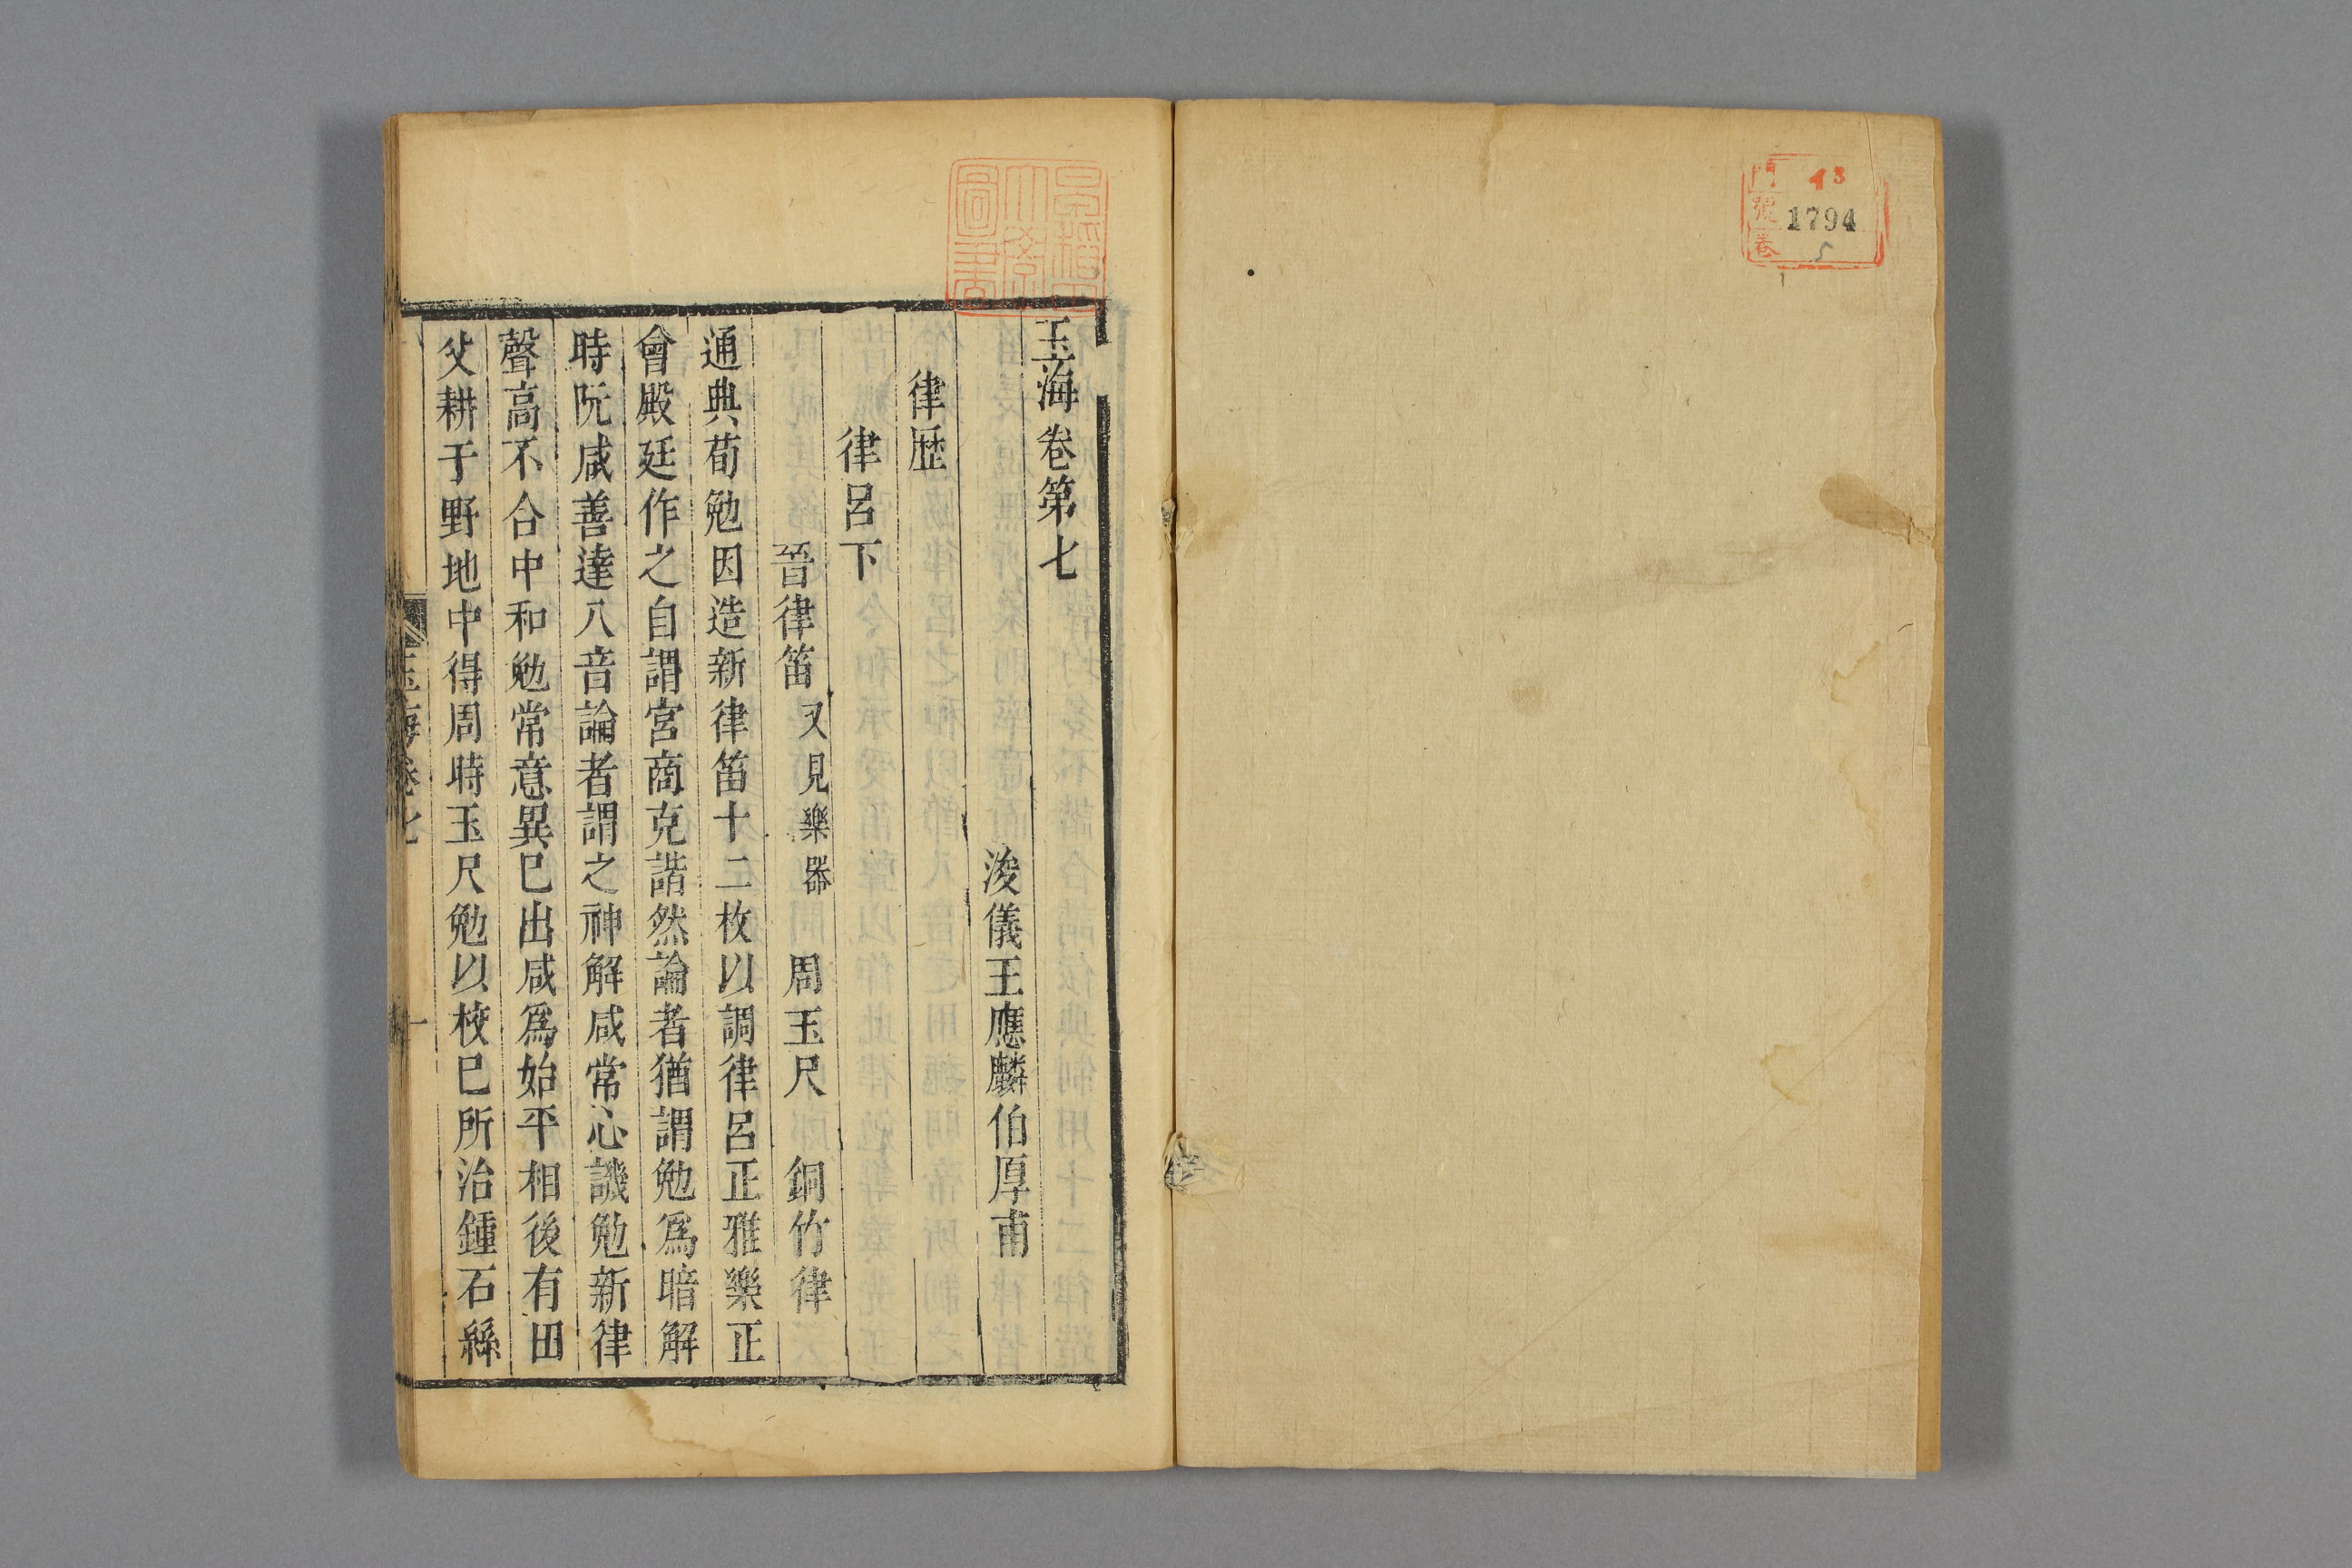 門 43
號 1794
卷 5
早稻田大學圖書
玉海卷第七
浚儀王應麟伯厚甫
律歷
律呂下
晉律笛 又見樂器 周玉尺 銅竹律
通典荀勉因造新律笛十二枚以調律呂正雅樂正
會殿廷作之自謂宮商克諧然論者猶謂勉爲暗解
時阮咸善達八音論者謂之神解咸常心譏勉新律
聲高不合中和勉常意異巳出咸爲始平相後有田
父耕于野地中得周時玉尺勉以校巳所治鍾石絲
玉海卷七 一